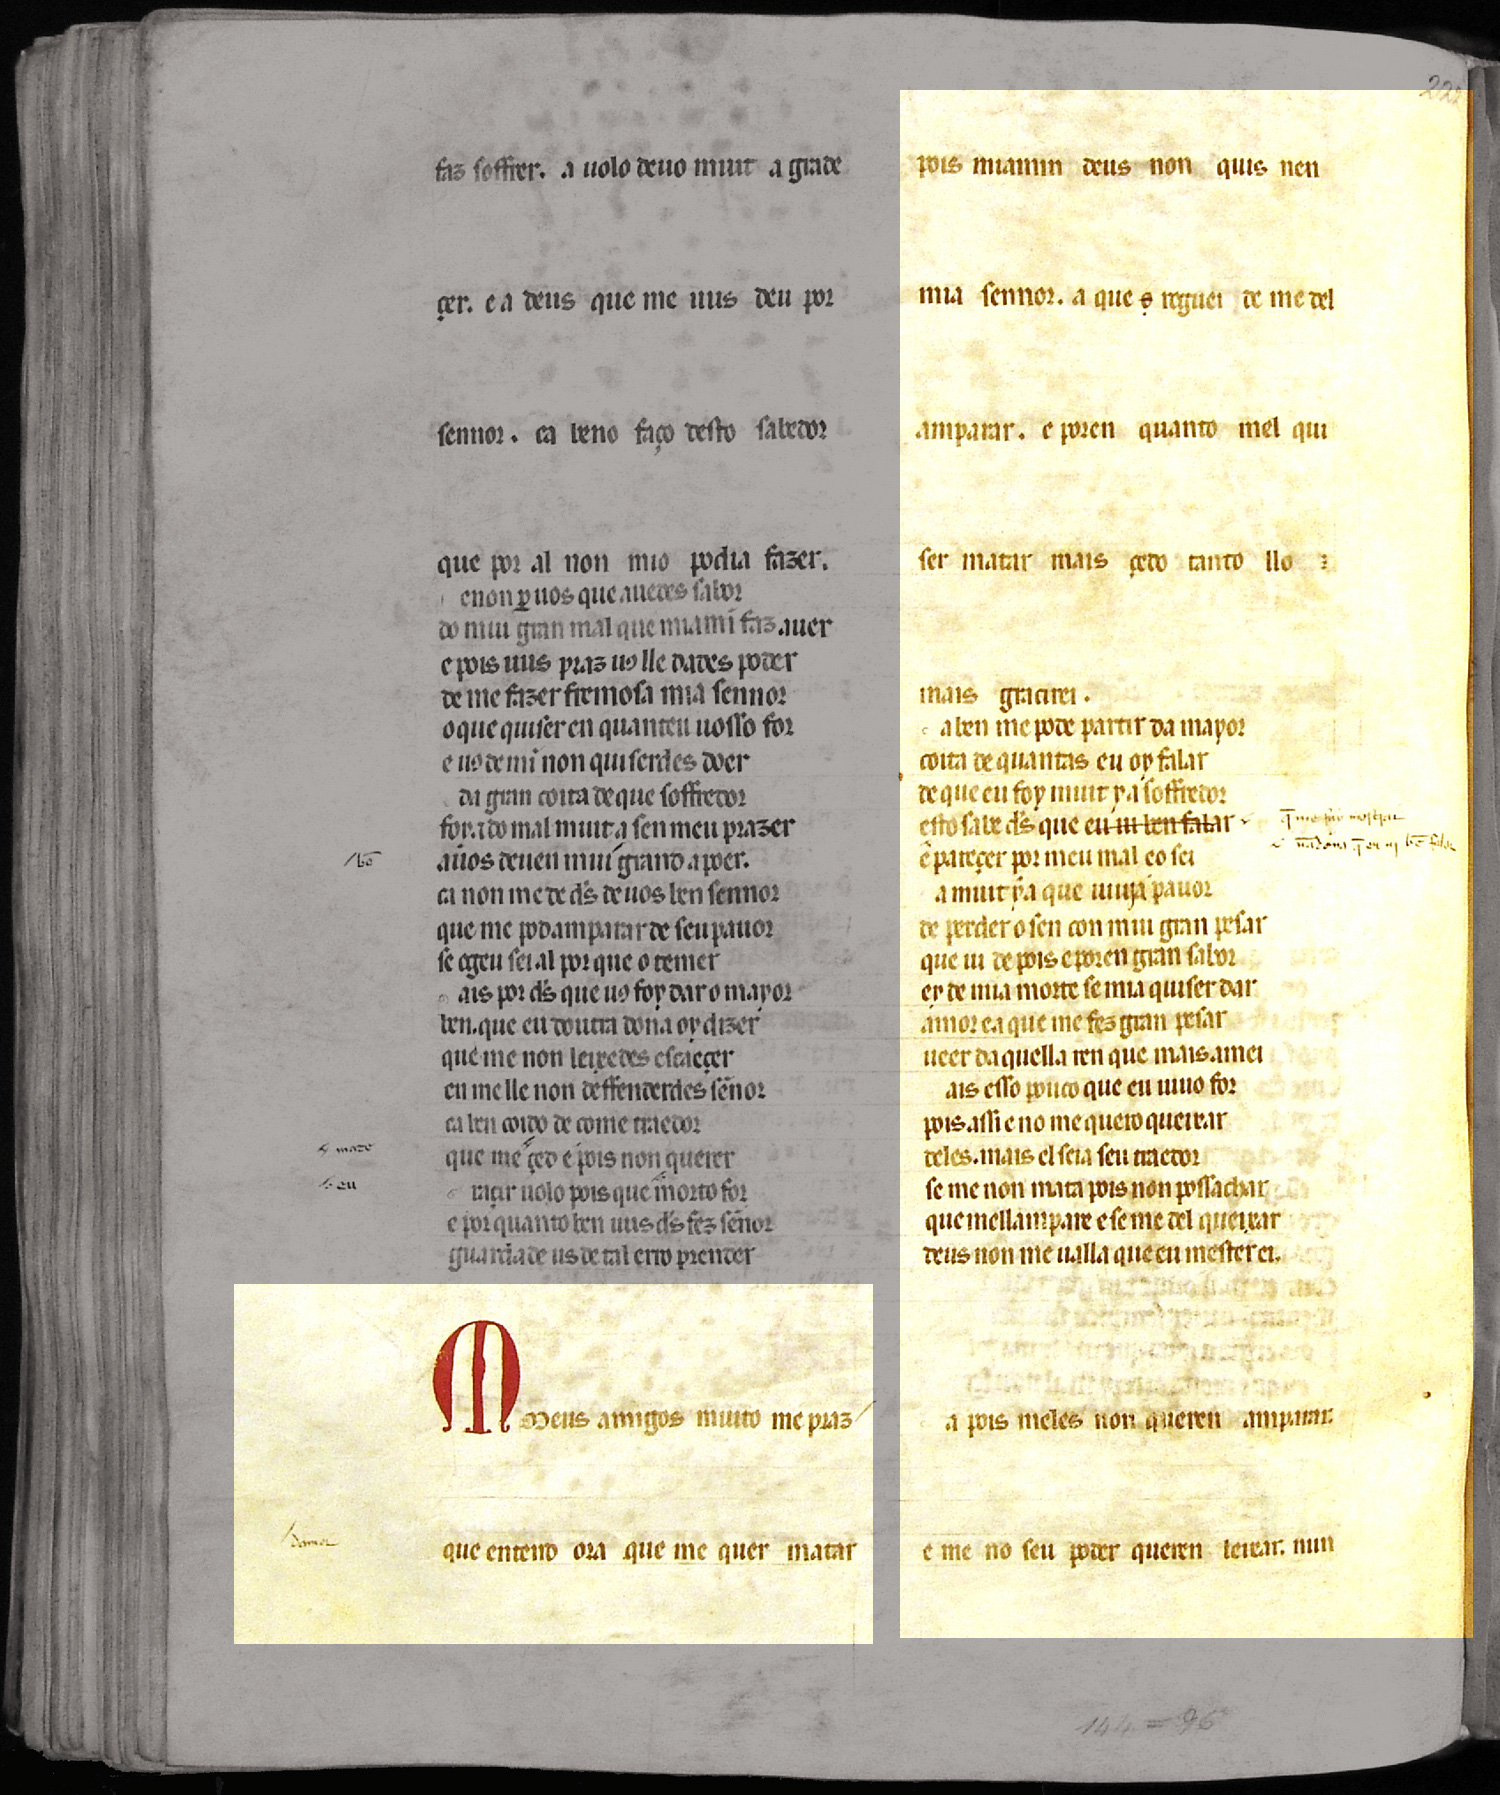 faz soffrer. a uolo deuo muit a grade
çer. e a deus que me uus deu por
sennor. ca beno faço desto sabedor
que por al non mio podia fazer.
enon ꝑ uos que auedes sabor
do mui gran mal que miami faz auer
e pois uus praz uꝯ lle dades poder
de me fazer fremosa mia sennor
o que quiser en quanteu uosso for
e uꝯ de mi non quiserdes doer
da gran coita de que soffredor
foi.a do mal muit a sen meu prazer
/bẽ
a uos deuen mui grand a poer.
ca non me de d̃s de uos ben sennor
que me pod amparar de seu pauor
se ogeu sei al por que o temer
ais por d̃s que uꝯ foy dar o mayor
ben. que eu doutra dona oy dizer
que me non leixedes escaeçer
en me lle non deffenderdes sẽnor
ca ben coido de come traedor
moere
que me çed e pois non querer
eu
raçir uolo pois que morto for
e por quanto ben uus d̃s fez sẽnor
guardade us de tal erro prender
Meus amigos muito me praz
que entend ora que me quer matar
pois mia min deus non quis nen
mia sennor. a que reguei de me del
amparar. e poren quanto mel qui
ser matar mais çedo tanto llo
mais graçirei.
a ben me pode partir da mayor
coita de quantas eu oy falar
de que eu foy muit y a soffredor
esto sabe d̃s que eu ui ben falar
e pareçer por meu mal eo sei
a muit y a que uiuia pauor
de perder o sen con mui gran pesar
que ui de pois e poren gran sabor
ey de mia morte se mia quiser dar
amor e a que me fez gran pesar
ueer da quella ren que mais amei
ais esso pouco que eu uiuo for
pois assi e no me quero queixar
deles. mais el seia seu traedor
se me non mata pois non poss achar
que mell ampare e se me del queixar
deus non me ualla que eu mester ei.
a pois meles non queren amparar
e me no seu poder queren leixar. nun
144 = 96